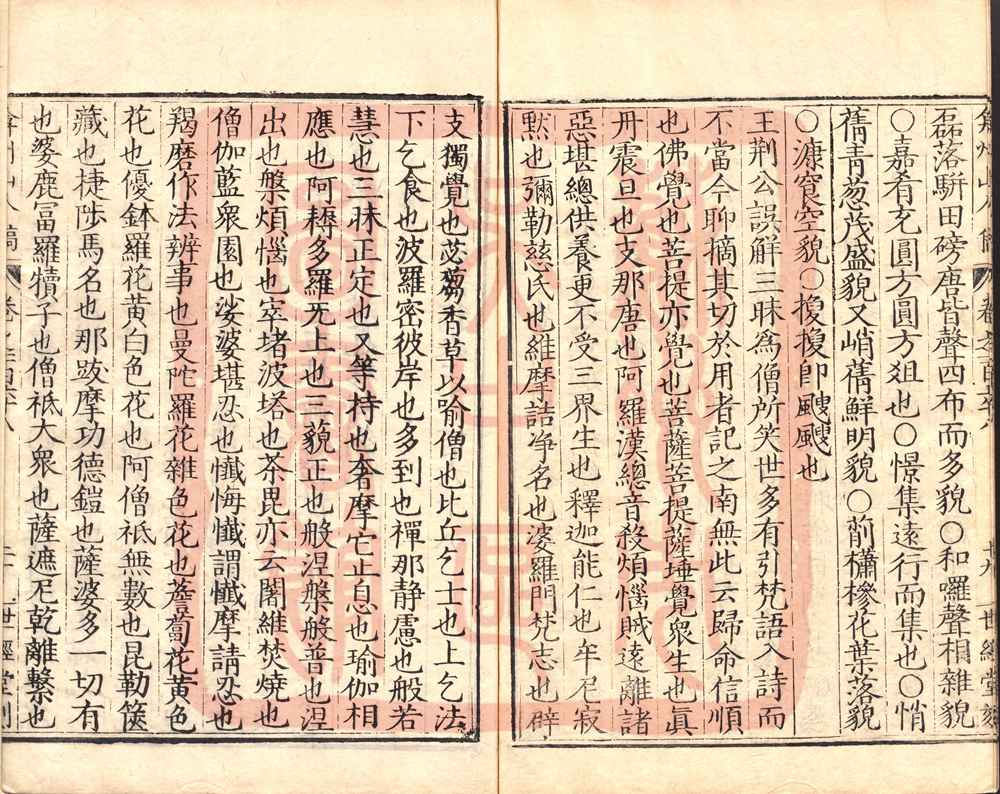 磊落駢田磅唐皆聲四布而多貌○和囉聲相雜貌
○嘉肴充圓方圓方爼也○憬集遠行而集也○悄
蒨青葱茂盛貌又峭蒨鮮明貌○萷櫹槮花葉落貌
○漮㝩空貌○㩳㩳即颼颼也
王荆公誤解三昧為僧所笑世多有引梵語入詩而
不當今聊摘其切於用者記之南無此云歸命信順
也佛覺也菩提亦覺也菩薩菩提薩埵覺衆生也眞
丹震旦也支那唐也阿羅漢總音殺煩惱賊遠離諸
惡堪總供養更不受三界生也釋迦能仁也牟尼寂
黙也彌勒慈氏也維摩詰净名也婆羅門梵志也辟
支獨覺也苾蒭香草以喻僧也比丘乞士也上乞法
下乞食也波羅密彼岸也多到也禪那静慮也般若
慧也三昧正定也又等持也奢摩它止息也瑜伽相
應也阿耨多羅无上也三藐正也般涅槃般普也涅
出也槃煩惱也窣堵波塔也茶毘亦云闍維焚燒也
僧伽藍衆園也娑婆堪忍也懺悔懺謂懺摩請忍也
羯磨作法辨事也曼陀羅花雜色花也薝蔔花黄色
花也優鉢羅花黄白色花也阿僧祗無數也昆勒篋
藏也揵陟馬名也那跋摩功德鎧也薩婆多一切有
也婆麁冨羅犢子也僧祗大衆也薩遮尼乾離繫也